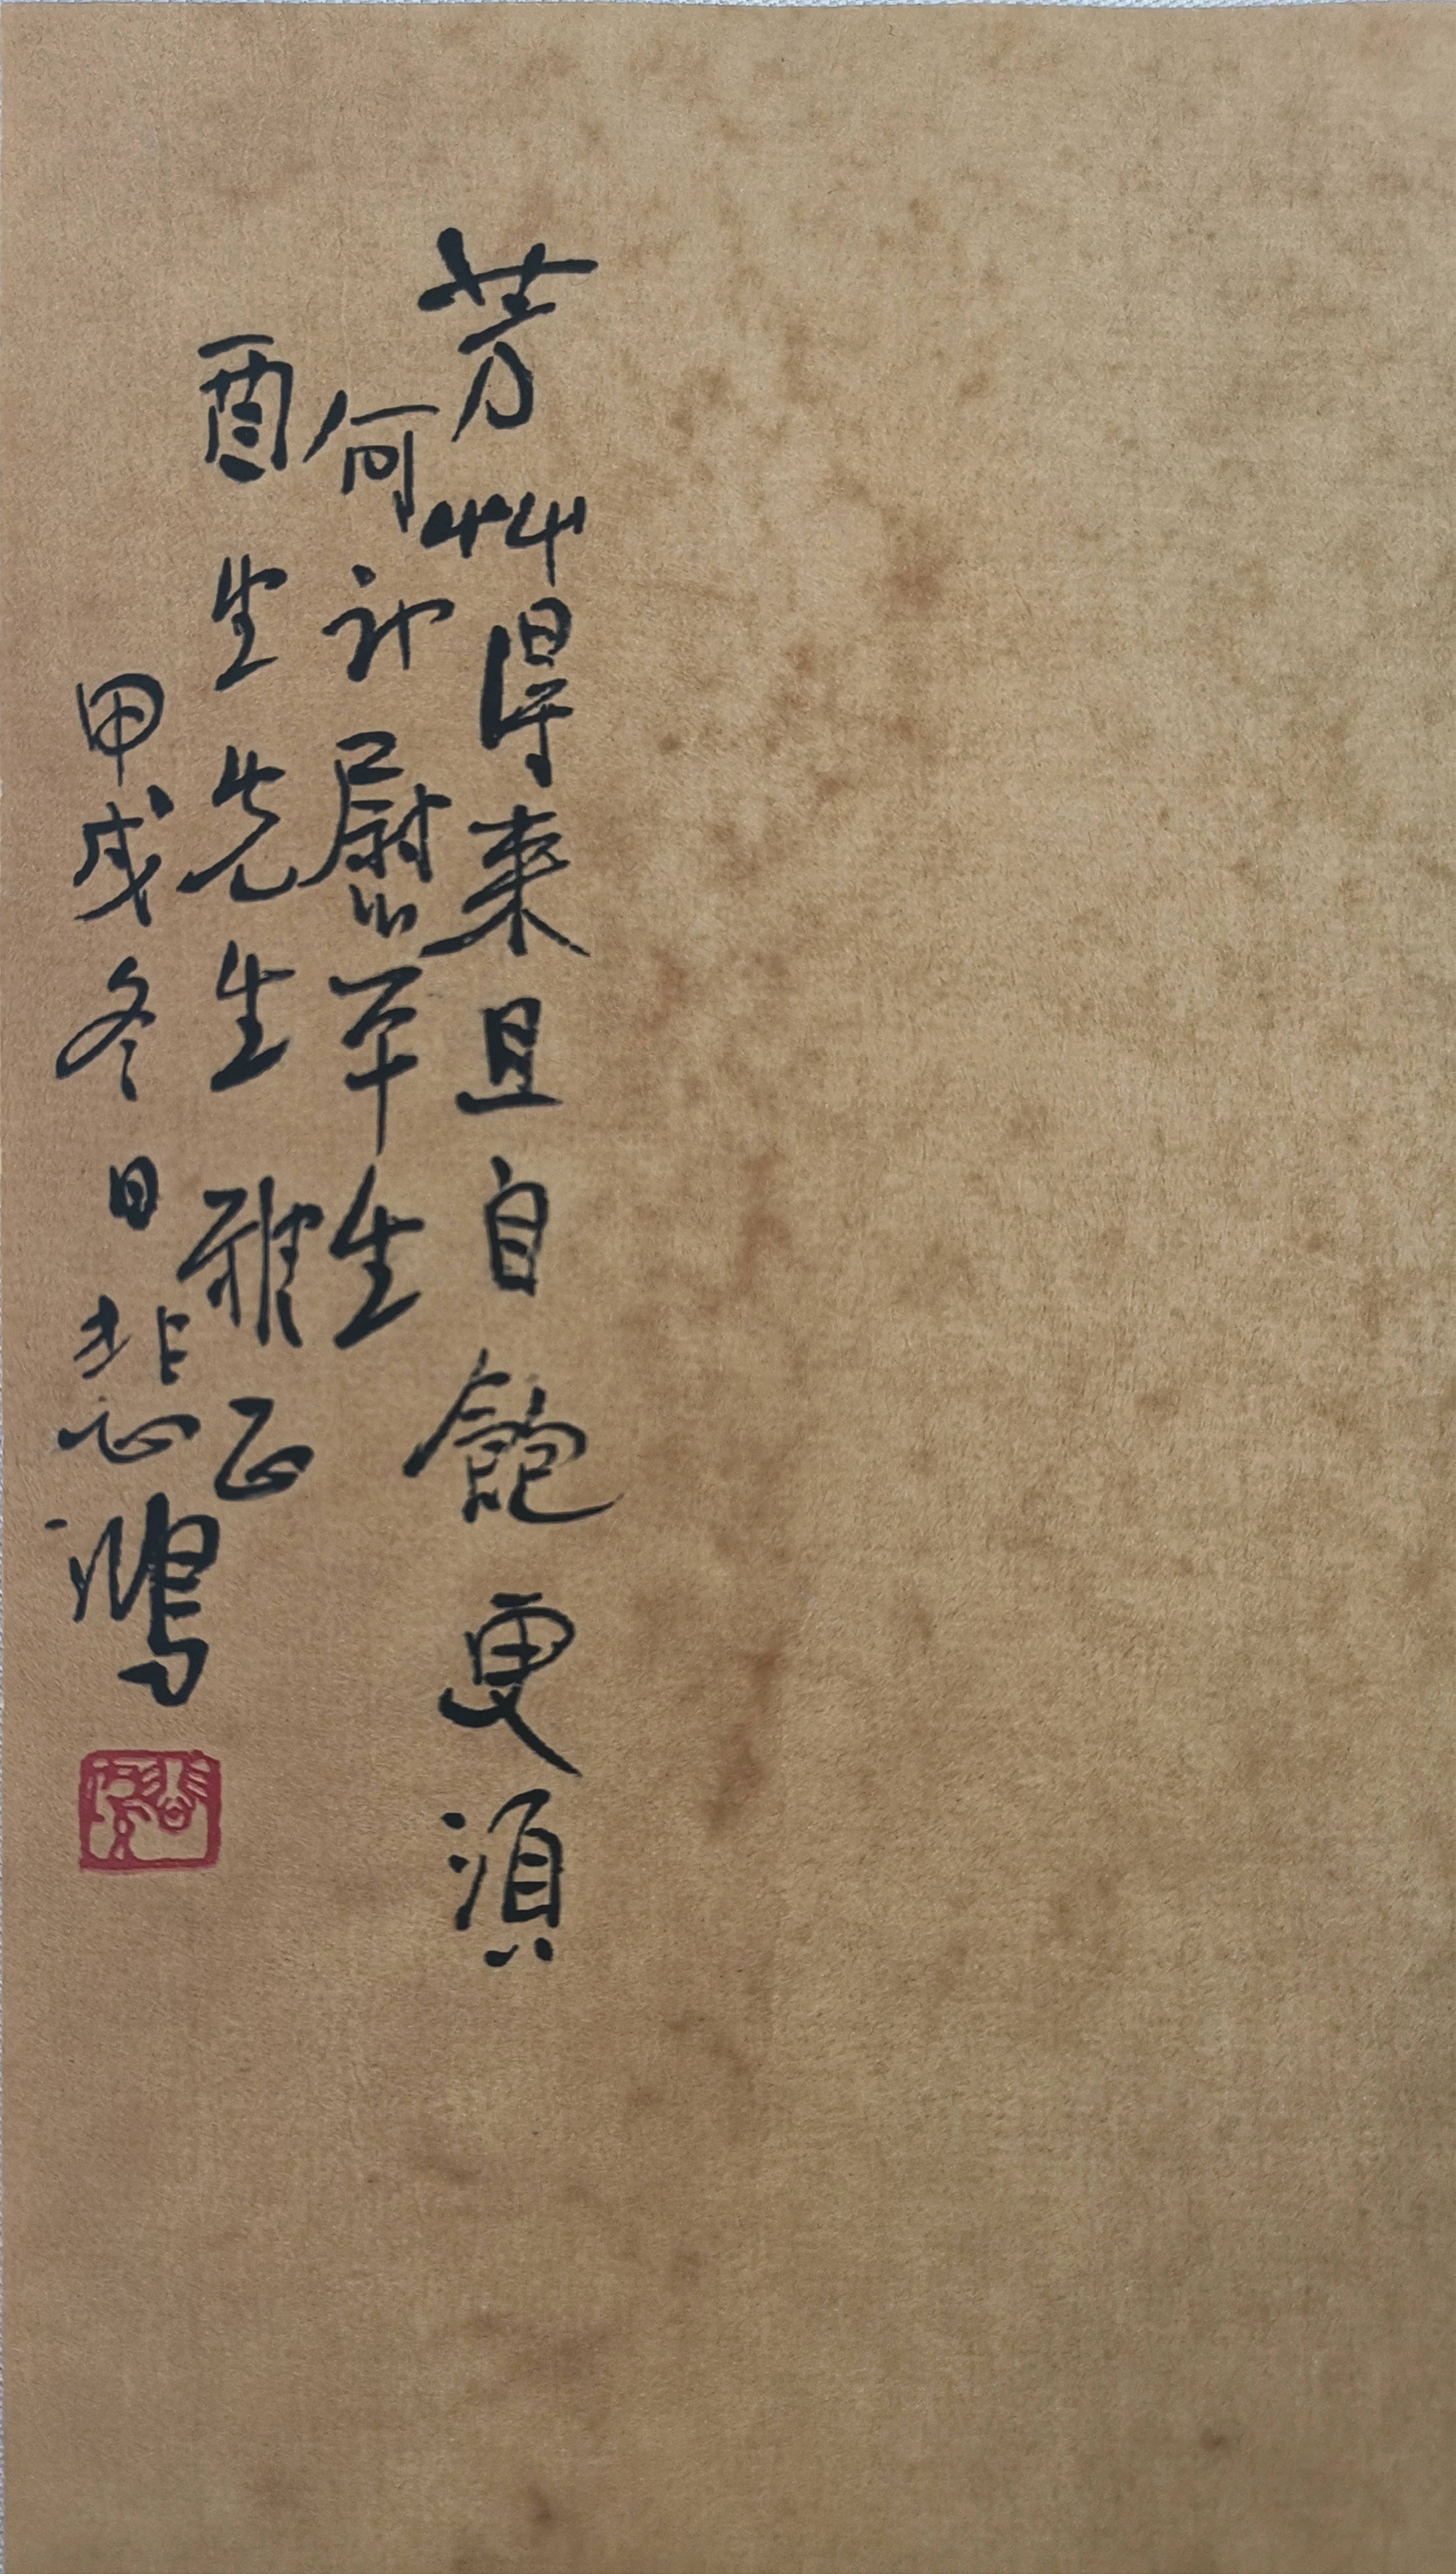 芳艸得来且自飽更須
何計慰平生
酉生先生雅正
甲戌冬日悲鴻